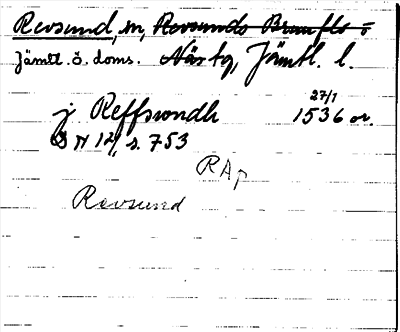 Revsund, sn, Revsunds Brunflo o
Jämtl. ö. doms. Näs tg, Jämtl. l.
j Reffswndh 27/1 1536 or.
S N 12, s. 753
RAp
Revsund